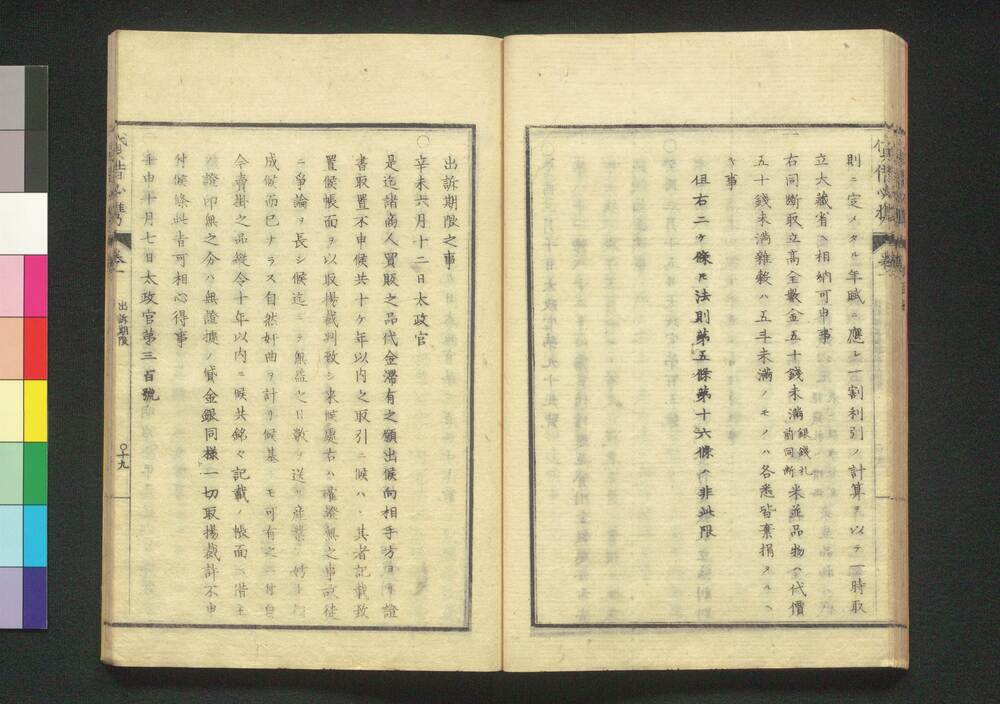 則ニ定メタル年賦ニ應シ一割利引ノ計算ヲ以テ一時取
立大藏省ヘ相納可申事
一右同斷取立高金數金五十錢未滿銀錢札前同斷米並品物ハ代價
五十錢未滿雜穀ハ五斗未滿ノモノハ各悉皆棄捐タルヘ
キ事
但右二ケ條ハ法則第五條第十六條ハ非此限
出訴期限之事
○辛未六月十二日太政官
是迄諸商人買販之品代金滯有之願出候向相手方ヨリ證
書取置不申候共十ケ年以内之取引ニ候ハヽ其者記載致
置候帳面ヲ以取揚裁判致シ來候處右ハ確證無之事故徒
ニ爭論ヲ長シ候迄ニテ無益之日數ヲ送リ産業ノ妨ト
成候而已ナラス自然奸曲ヲ計リ候基モ可有之ニ付自
今賣掛之品縱令十年以内ニ候共銘々記載ノ帳面ニ
證印無之分ハ無證據ノ貸金銀同樣一切取揚裁許不申
付候條此旨可相心得事
壬申十月七日太政官第三百號
卷一
出訴期限
○十九